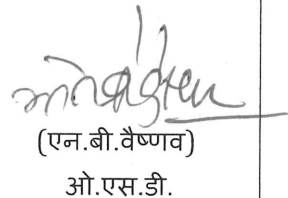 (एन.बी.वैष्णव)
ओ.एस.डी.